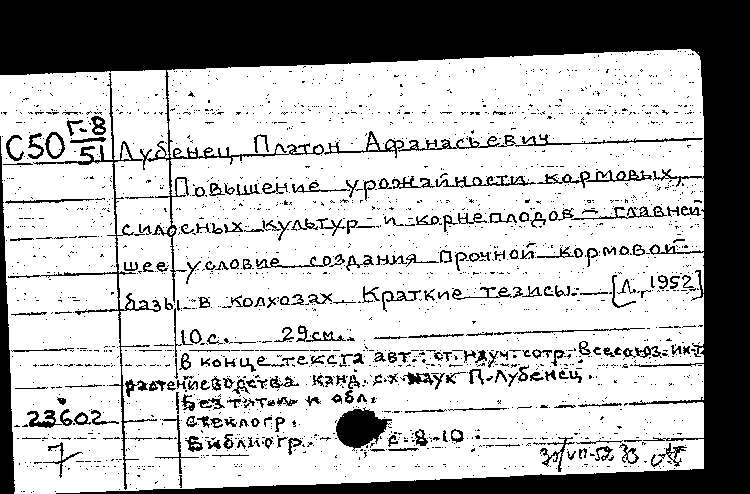 С50 Г-8/51
Лубенец, Платон Афанасьевич
Повышение урожайности кормовых,
силосных культур и корнеплодов – главней
шее условие создания прочной кормовой
базы в колхозах. Краткие тезисы. [Л., 1952]
10 с. 29 см.
В конце текста авт.: ст. науч. сотр. Всесоюз. ин-та
растениеводства канд. с.х. наук П. Лубенец.
Без титл. и обл.
23602 Стеклогр.
7 Библиогр. с. 8-10.
30/VII-52